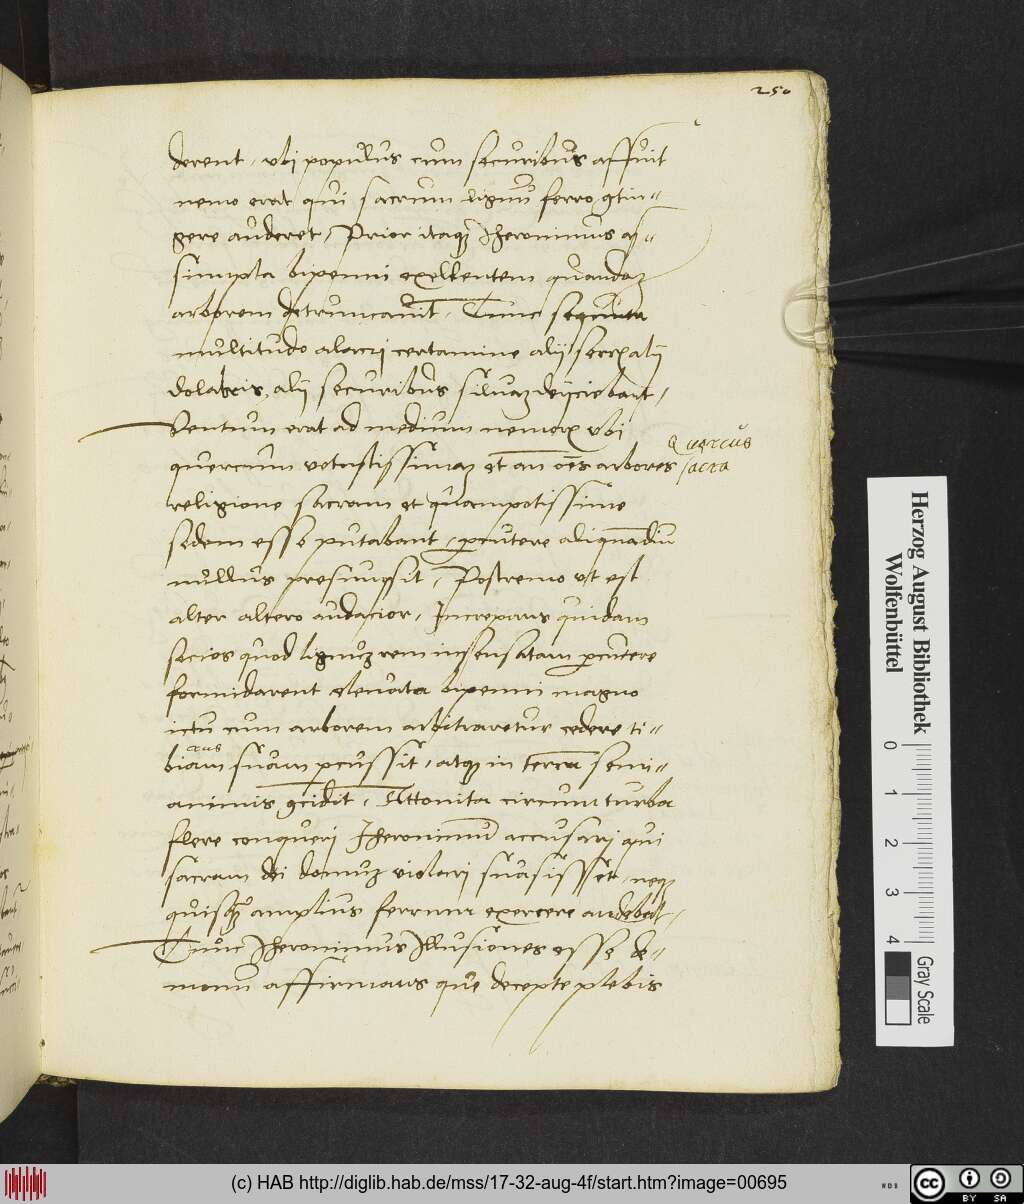 250
derent, vbi populus cum securibus affuit
nemo erat qui sacrum lignū ferro gtin-
gere auderet, Prior itaqz Jheronimus as-
sumpta bipenni exellentem quandaz
arborem detruncauit. Tunc sequuta
multitudo alacri certamine alij alij
dolabris, alij securibus siluaz deijciebant,
Ventum erat ad medium nemoris vbi
quercum vetustissimaz et an oēs arbores
Quercus
sacra
religione sacram et quampotissime
sedem esse putabant, percutere aliquamdiu
nullus presumpsit, Postremo vt est
alter altero audacior, Increpans quidam
socios quod lignuz rem insensatam percutere
formidarent eleuata bipenni magno
ictu cum arborem arbitraretur cedere ti-
biam suam percussit, atqz in terram semi-
animis gcidit, Attonita circum turba
flere conqueri Jheronimū accusari qui
sacram dei domuz violari suasisset, neqz
quisqz amplius ferrum exercere audebat,
Tunc Jheronimus Illusiones esse de-
monū affirmans que decepte plebis
Herzog August Bibliothek
Wolfenbüttel
0 1 2 3 4
Gray Scale
(c) HAB http://diglib.hab.de/mss/17-32-aug-4f/start.htm?image=00695
cc BY SA